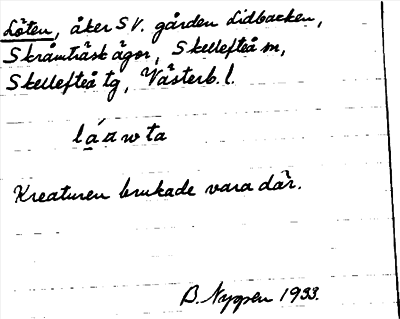 Löten, åker SV. gården Lidbacken,
Skråmträsk ägor, Skellefteå m,
Skellefteå tg, Västerb. l.
Kreaturen brukade vara där.
B. Nygren 1933.